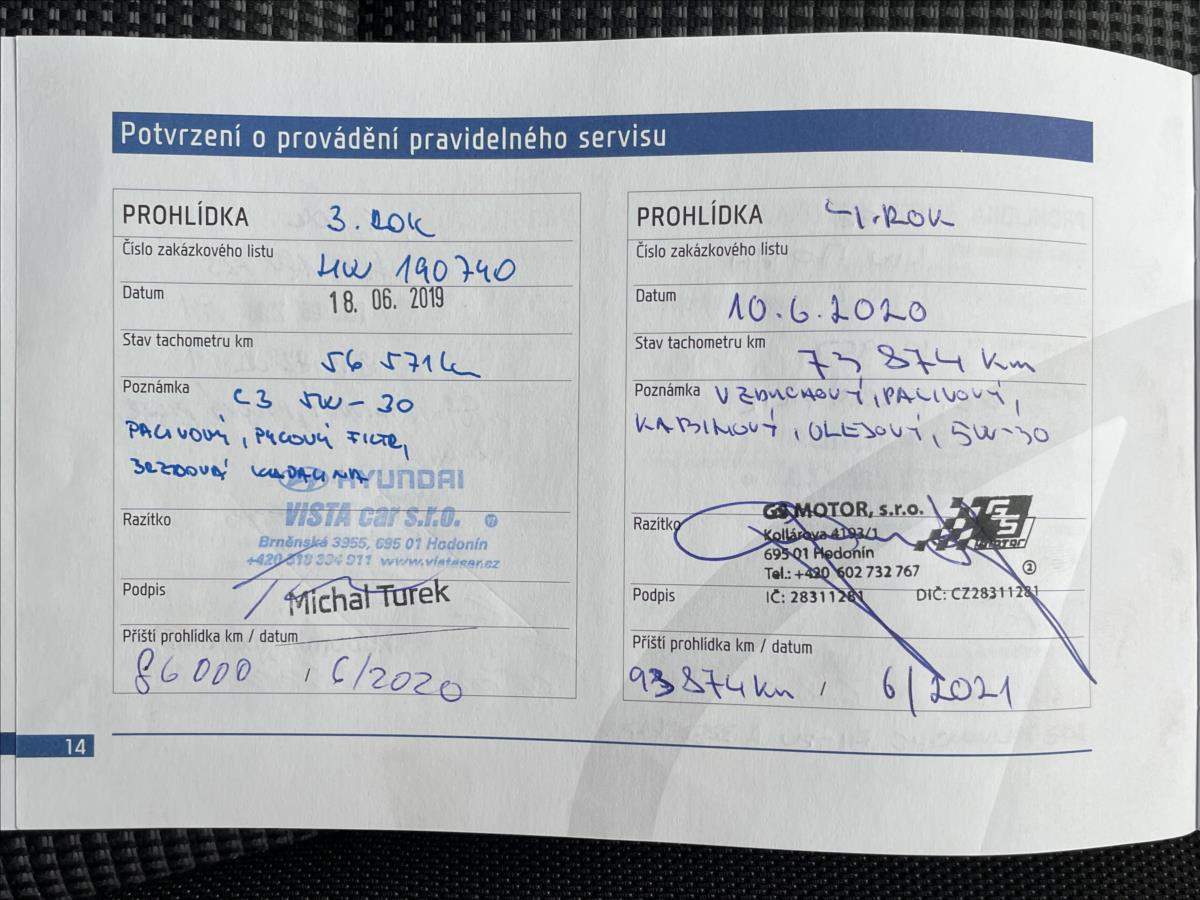 Potvrzení o provádění pravidelného servisu
PROHLÍDKA 3. ROK
Číslo zakázkového listu HW 190740
Datum 18. 06. 2019
Stav tachometru km 56 571 km
Poznámka , C3 5W-30
PALIVOVÝ, PYLOVÝ FILTR,
BRZDOVÁ KAPALINA
HYUNDAI
VISTA car s.r.o.
Razítko
Brněnská 3955, 695 01 Hodonín
www.vistacar.cz
Podpis Michal Turek
Příští prohlídka km / datum
86 000 / 6/2020
PROHLÍDKA 4. ROK
Číslo zakázkového listu
Datum 10.6.2020
Stav tachometru km 73 874 km
Poznámka VZDUCHOVÝ, PALIVOVÝ,
KABINOVÝ, OLEJOVÝ, 5W-30
GS MOTOR, s.r.o. GS
Razítko Kollárova 4193/1 MOTOR
695 01 Hodonín
Tel.: +420 602 732 767 2
Podpis IČ: 28311281 DIČ: CZ28311281
Příští prohlídka km / datum
93 874 km / 6/2021
14